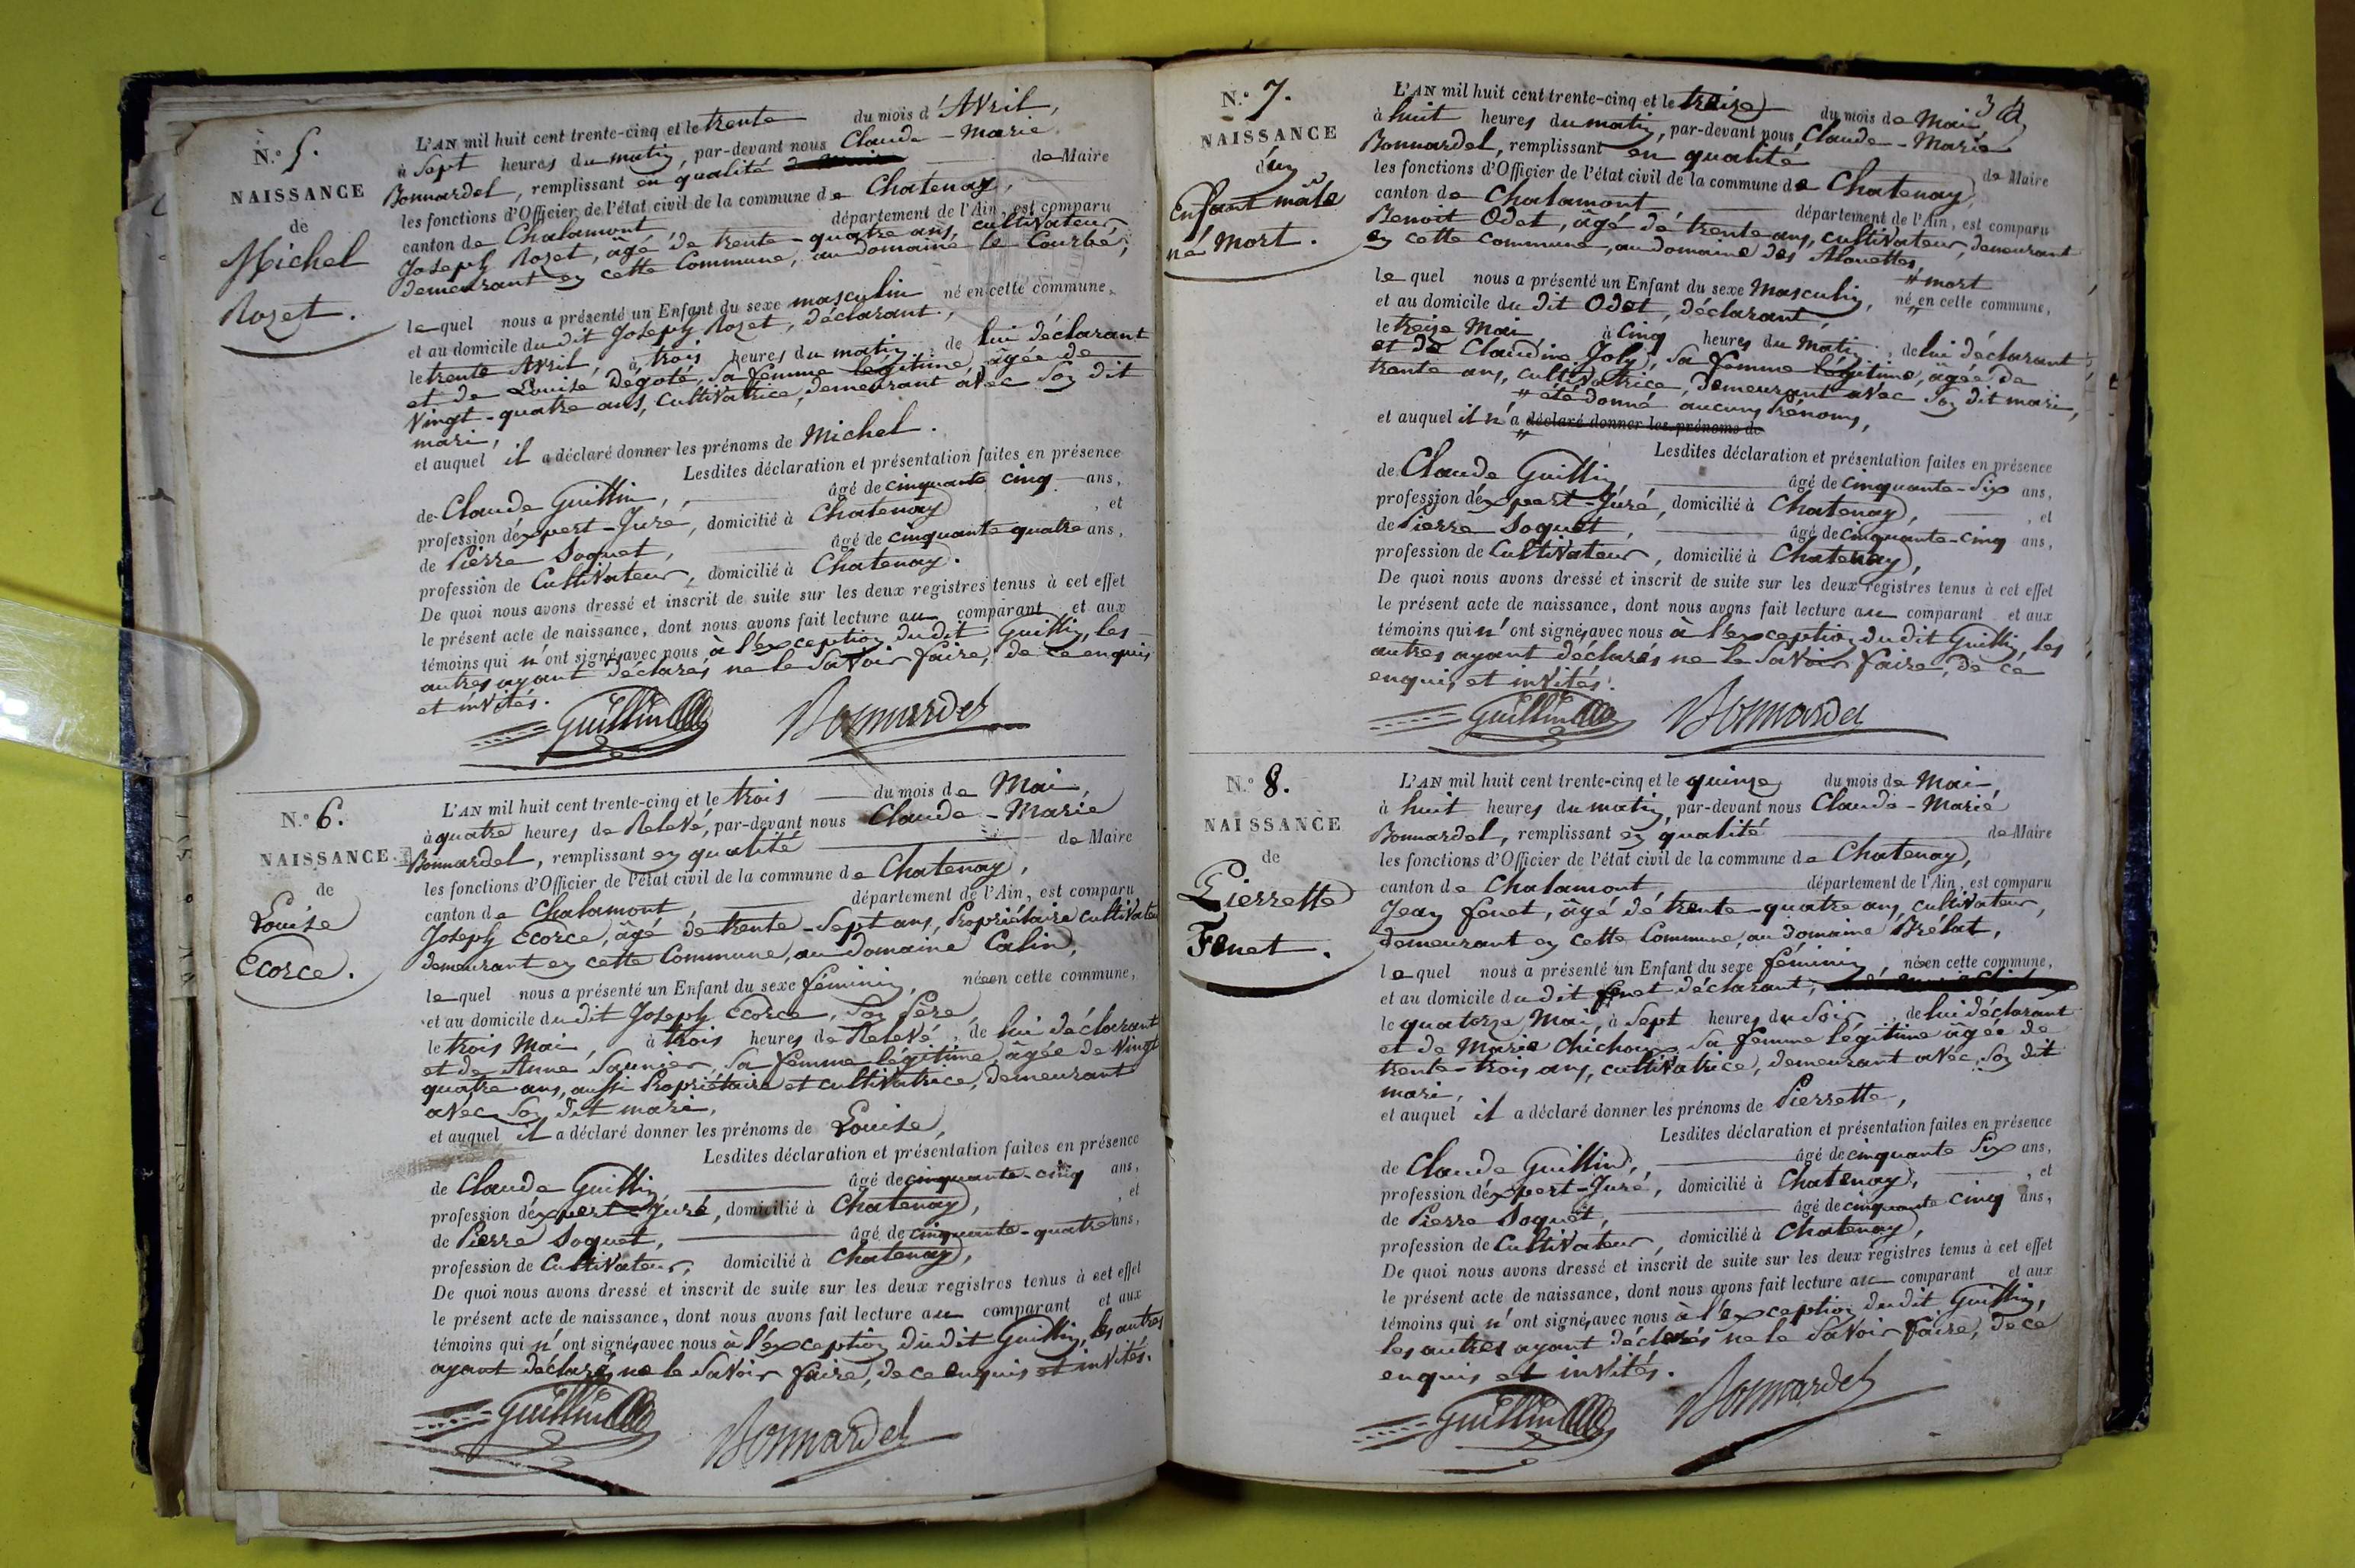 N.º 5.
NAISSANCE
de
Michel
Rozet.
L'AN mil huit cent trente-cinq et le trente du mois d'Avril,
à Sept heures du matin, par-devant nous Claude-Marie
Bonnardel, remplissant en qualité de Maire
les fonctions d'Officier de l'état civil de la commune de Chatenay,
canton de Chalamont département de l'Ain, est comparu
Joseph Rozet, âgé de trente-quatre ans, cultivateur
demeurant en cette Commune, au domaine le Courbé,
lequel nous a présenté un Enfant du sexe masculin né en cette commune,
et au domicile du dit Joseph Rozet, déclarant,
le trente Avril, à trois heures du matin, de lui déclarant
et de Louise Degoté, sa femme légitime, âgée de
Vingt-quatre ans, Cultivatrice, demeurant avec son dit
mari,
et auquel il a déclaré donner les prénoms de Michel.
Lesdites déclaration et présentation faites en présence
de Claude Guillin, âgé de cinquante cinq ans,
profession d'expert-Juré, domicilié à Chatenay, et
de Pierre Soquet, âgé de cinquante quatre ans,
profession de Cultivateur, domicilié à Chatenay.
De quoi nous avons dressé et inscrit de suite sur les deux registres tenus à cet effet
le présent acte de naissance, dont nous avons fait lecture au comparant et aux
témoins qui n'ont signé, avec nous à l'exception du dit Guillin, les
autres ayant déclarés ne le Savoir faire, de ce enquis
et invités.
Guillin Bonnardel
N.º 6.
NAISSANCE
de
Louise
Ecorce.
L'AN mil huit cent trente-cinq et le trois du mois de Mai,
à quatre heures de Relevé, par-devant nous Claude-Marie
Bonnardel, remplissant en qualité de Maire
les fonctions d'Officier de l'état civil de la commune de Chatenay,
canton de Chalamont département de l'Ain, est comparu
Joseph Ecorce, âgé de trente-Sept ans, Propriétaire cultivateur
demeurant en cette Commune, au Domaine Calin,
lequel nous a présenté un Enfant du sexe féminin, née en cette commune,
et au domicile du dit Joseph Ecorce, son Père,
le trois Mai, à trois heures de Relevé, de lui déclarant
et de Anne Saunier, sa femme légitime, âgée de Vingt
quatre ans, aussi Propriétaire et cultivatrice, demeurant
avec son dit mari,
et auquel il a déclaré donner les prénoms de Louise,
Lesdites déclaration et présentation faites en présence
de Claude Guillin âgé de cinquante-cinq ans,
profession d'expert-Juré, domicilié à Chatenay, et
de Pierre Soquet, âgé de cinquante-quatre ans,
profession de Cultivateur, domicilié à Chatenay,
De quoi nous avons dressé et inscrit de suite sur les deux registres tenus à cet effet
le présent acte de naissance, dont nous avons fait lecture au comparant et aux
témoins qui n'ont signé, avec nous à l'exception du dit Guillin, les autres
ayant déclarés ne le Savoir faire, de ce enquis et invités.
Guillin Bonnardel
N.º 7.
NAISSANCE
d'un
Enfant mâle
né Mort.
3
L'AN mil huit cent trente-cinq et le treize du mois de Mai,
à huit heures du matin, par-devant nous Claude-Marie
Bonnardel, remplissant en qualité de Maire
les fonctions d'Officier de l'état civil de la commune de Chatenay,
canton de Chalamont département de l'Ain, est comparu
Benoit Odet, âgé de trente ans, cultivateur, demeurant
en cette commune, au domaine des Alouettes,
# mort
lequel nous a présenté un Enfant du sexe Masculin, né # en cette commune,
et au domicile du dit Odet, déclarant,
le treize Mai à Cinq heures du Matin, de lui déclarant
et de Claudine Joly, sa femme légitime, âgée de
trente ans, cultivatrice, demeurant avec son dit mari,
# été donné aucuns Prénoms,
et auquel il n'a # déclaré donner les prénoms de
Lesdites déclaration et présentation faites en présence
de Claude Guillin âgé de cinquante-six ans,
profession d'expert-Juré, domicilié à Chatenay, et
de Pierre Soquet, âgé de cinquante-cinq ans,
profession de Cultivateur, domicilié à Chatenay,
De quoi nous avons dressé et inscrit de suite sur les deux registres tenus à cet effet
le présent acte de naissance, dont nous avons fait lecture au comparant et aux
témoins qui n'ont signé, avec nous à l'exception du dit Guillin, les
autres ayant déclarés ne le Savoir faire, de ce
enquis et invités.
Guillin Bonnardel
N.º 8.
NAISSANCE
de
Pierrette
Fenet.
L'AN mil huit cent trente-cinq et le quinze du mois de Mai,
à huit heures du matin, par-devant nous Claude-Marie
Bonnardel, remplissant en qualité de Maire
les fonctions d'Officier de l'état civil de la commune de Chatenay,
canton de Chalamont département de l'Ain, est comparu
Jean fenet, âgé de trente-quatre ans, cultivateur,
demeurant en cette Commune, au domaine Brélat,
lequel nous a présenté un Enfant du sexe féminin, née en cette commune,
et au domicile du dit fenet déclarant,
le quatorze Mai, à Sept heures du Soir, de lui déclarant
et de Marie Chichoux sa femme légitime âgée de
trente-trois ans, cultivatrice, demeurant avec, son dit
mari,
et auquel il a déclaré donner les prénoms de Pierrette,
Lesdites déclaration et présentation faites en présence
de Claude Guillin, âgé de cinquante Six ans,
profession d'expert-Juré, domicilié à Chatenay, et
de Pierre Soquet, âgé de cinquante cinq ans,
profession de Cultivateur, domicilié à Chatenay,
De quoi nous avons dressé et inscrit de suite sur les deux registres tenus à cet effet
le présent acte de naissance, dont nous avons fait lecture au comparant et aux
témoins qui n'ont signé, avec nous à l'exception du dit Guillin,
les autres ayant déclarés ne le Savoir faire, de ce
enquis et invités.
Guillin Bonnardel